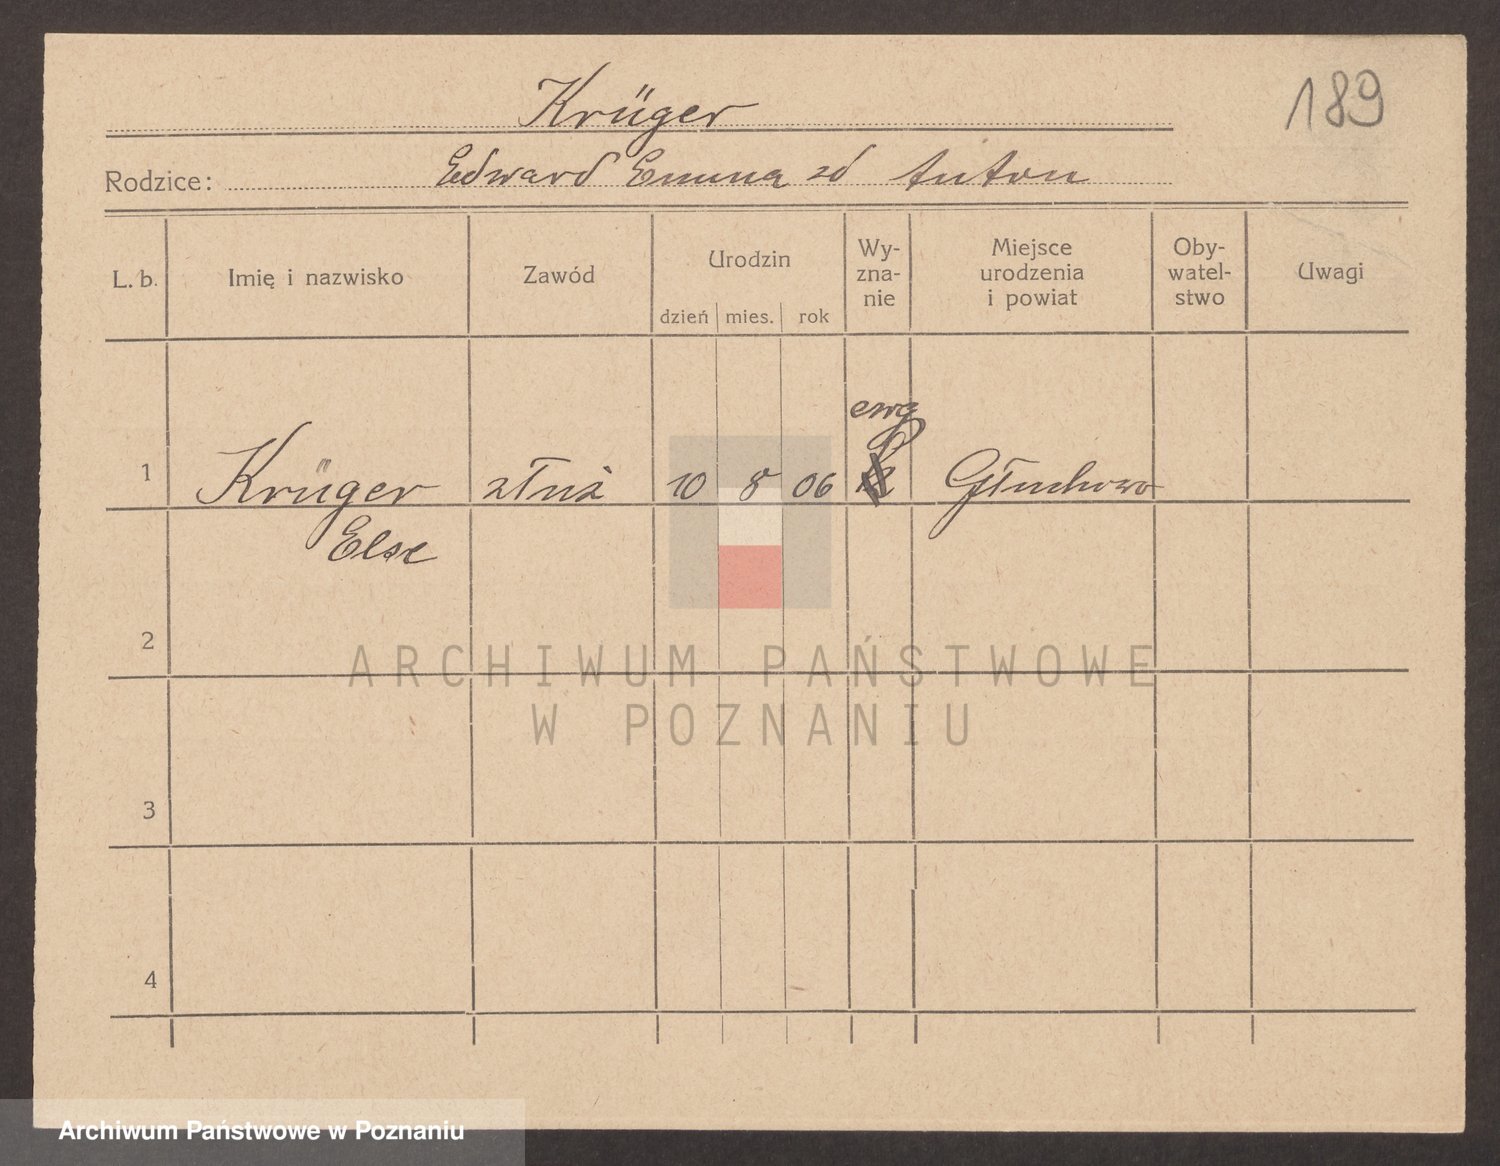 189
Krüger
Rodzice: Edward Emma zd Anton
L. b. Imię i nazwisko Zawód Urodzin dzień mies. rok Wy-zna-nie Miejsce urodzenia i powiat Oby-watel-stwo Uwagi
ewg
1 Krüger złuż 10 8 06 Głuchowo
Else
2
3
4
ARCHIWUM PAŃSTWOWE
W POZNANIU
Archiwum Państwowe w Poznaniu